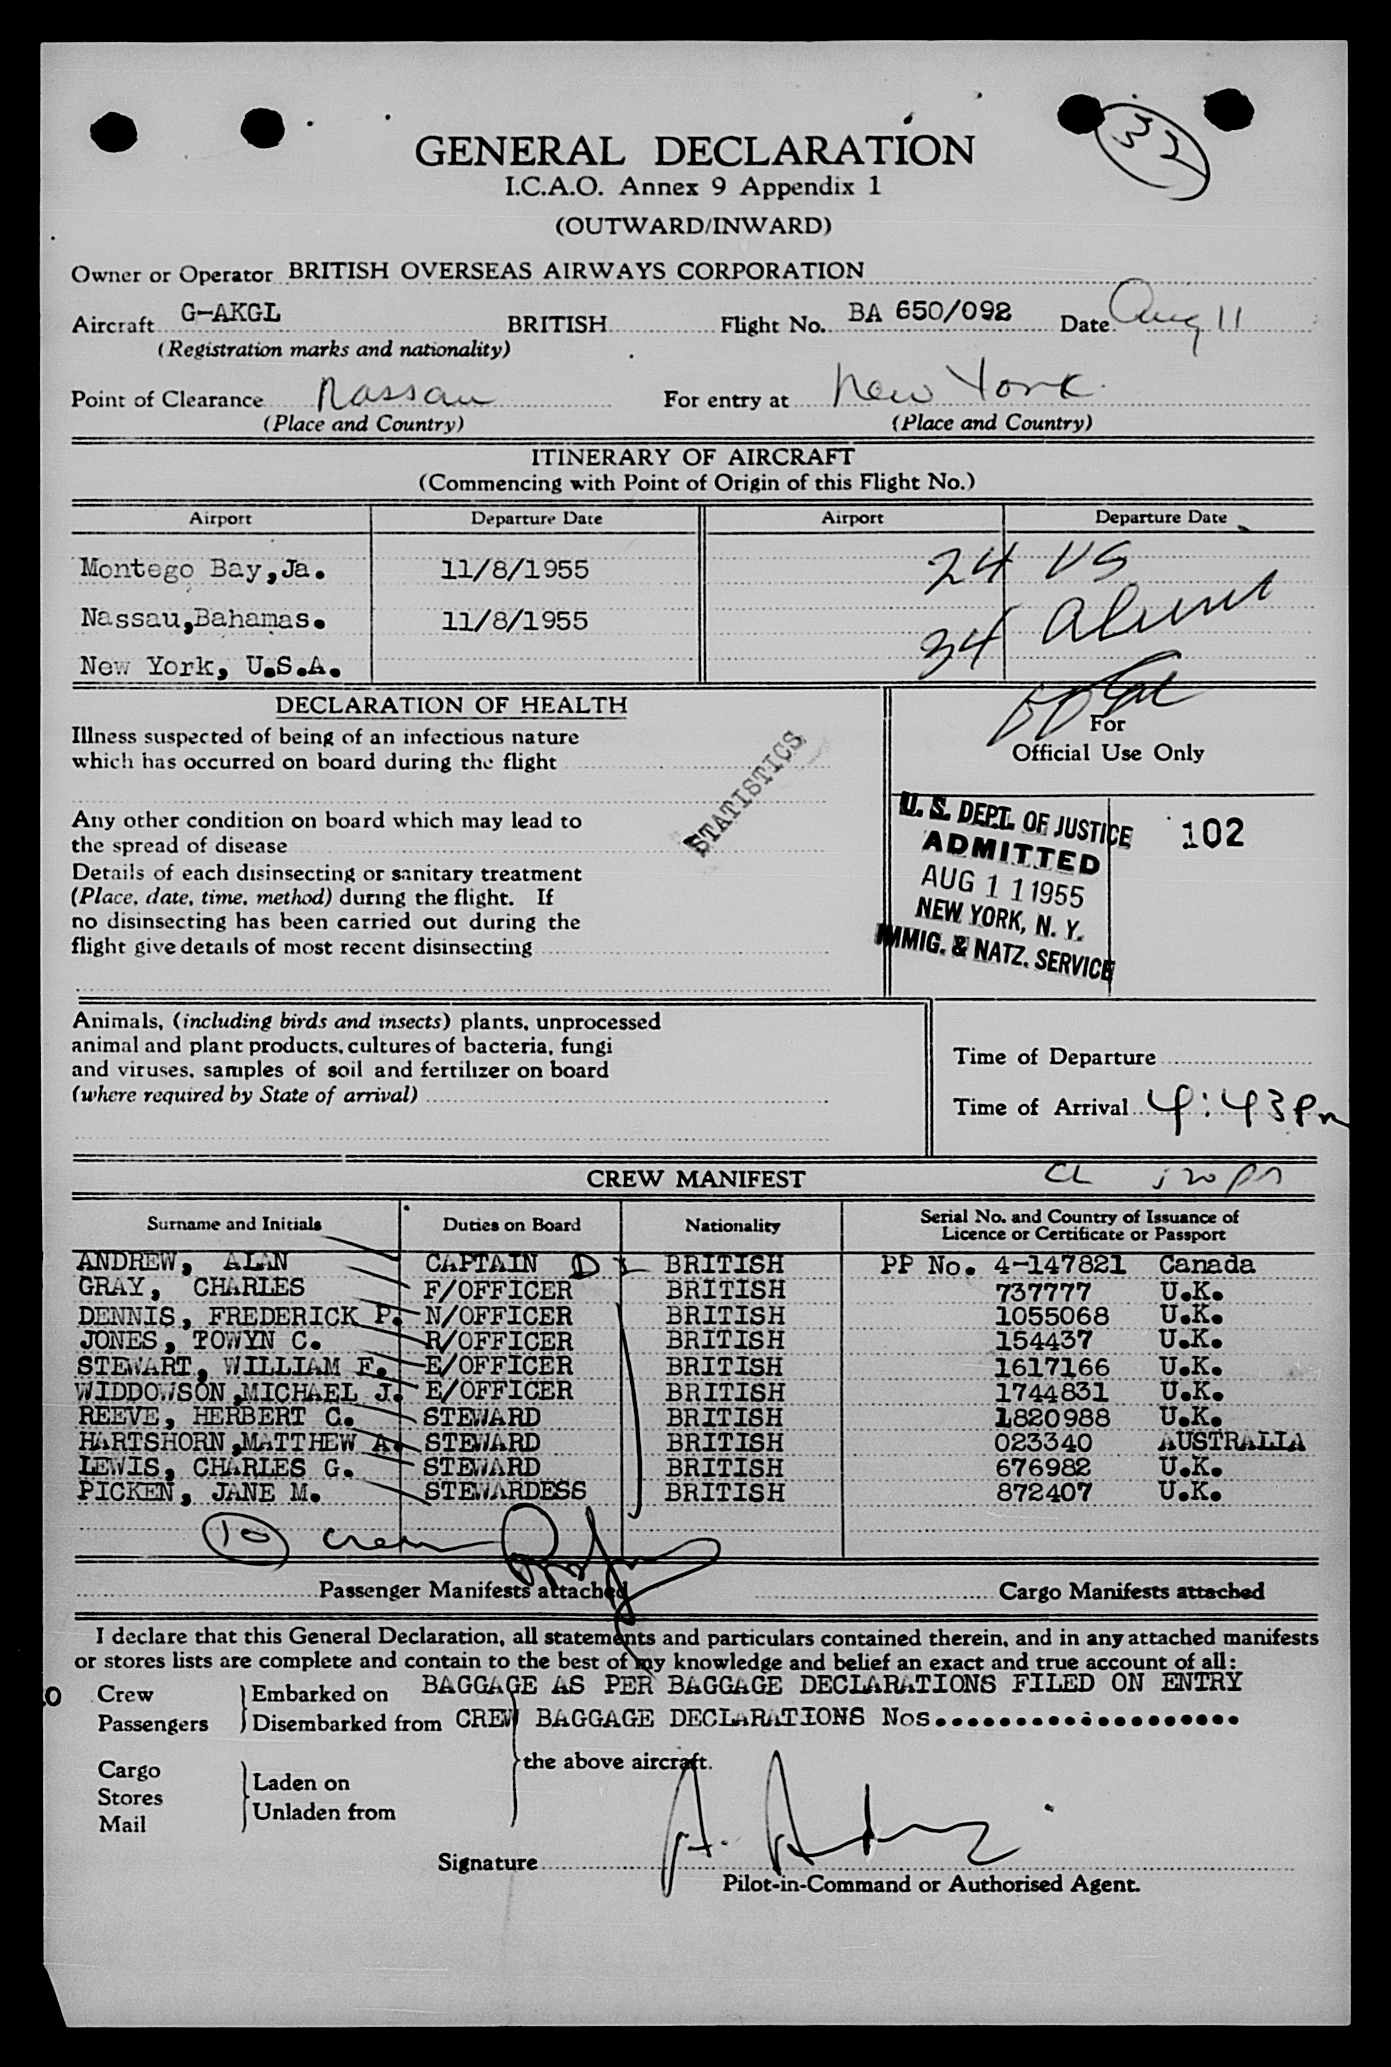 32
GENERAL DECLARATION
I.C.A.O. Annex 9 Appendix 1
(OUTWARD/INWARD)
Owner or Operator BRITISH OVERSEAS AIRWAYS CORPORATION
Aircraft G-AKGL BRITISH Flight No. BA 650/092 Date Aug 11
(Registration marks and nationality)
Point of Clearance Nassau For entry at New York
(Place and Country) (Place and Country)
ITINERARY OF AIRCRAFT
(Commencing with Point of Origin of this Flight No.)
Airport Departure Date Airport Departure Date
Montego Bay,Ja. 11/8/1955 24 US
Nassau,Bahamas. 11/8/1955 34
New York, U.S.A.
DECLARATION OF HEALTH
Illness suspected of being of an infectious nature
which has occurred on board during the flight
Any other condition on board which may lead to
the spread of disease
Details of each disinsecting or sanitary treatment
(Place, date, time, method) during the flight. If
no disinsecting has been carried out during the
flight give details of most recent disinsecting
STATISTICS
For
Official Use Only
U. S. DEPT. OF JUSTICE
ADMITTED
AUG 11 1955
NEW YORK, N. Y.
IMMIG. & NATZ. SERVICE
102
Animals, (including birds and insects) plants, unprocessed
animal and plant products, cultures of bacteria, fungi
and viruses, samples of soil and fertilizer on board
(where required by State of arrival)
Time of Departure
Time of Arrival 4:43 pm
CREW MANIFEST
Surname and Initials Duties on Board Nationality Serial No. and Country of Issuance of
Licence or Certificate or Passport
ANDREW, ALAN CAPTAIN D BRITISH PP No. 4-147821 Canada
GRAY, CHARLES F/OFFICER BRITISH 737777 U.K.
DENNIS, FREDERICK P. N/OFFICER BRITISH 1055068 U.K.
JONES, TOWYN C. R/OFFICER BRITISH 154437 U.K.
STEWART, WILLIAM F. E/OFFICER BRITISH 1617166 U.K.
WIDDOWSON,MICHAEL J. E/OFFICER BRITISH 1744831 U.K.
REEVE, HERBERT G. STEWARD BRITISH 1820988 U.K.
HARTSHORN,MATTHEW A. STEWARD BRITISH 023340 AUSTRALIA
LEWIS, CHARLES G. STEWARD BRITISH 676982 U.K.
PICKEN, JANE M. STEWARDESS BRITISH 872407 U.K.
10 crew
Passenger Manifests attached Cargo Manifests attached
I declare that this General Declaration, all statements and particulars contained therein, and in any attached manifests
or stores lists are complete and contain to the best of my knowledge and belief an exact and true account of all:
Crew Embarked on BAGGAGE AS PER BAGGAGE DECLARATIONS FILED ON ENTRY
Passengers Disembarked from CREW BAGGAGE DECLARATIONS Nos....................
the above aircraft.
Cargo
Stores Laden on
Mail Unladen from
Signature
Pilot-in-Command or Authorised Agent.